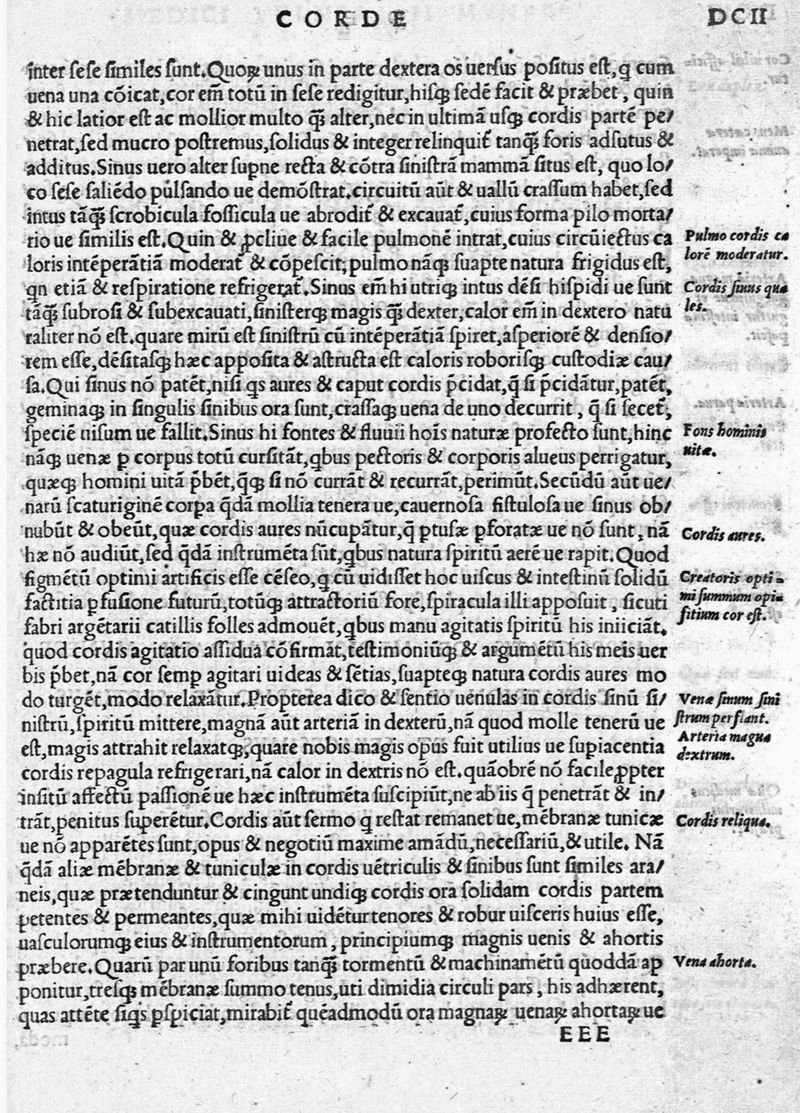 CORDE DCII
inter sese similes sunt. Quoꝝ unus in parte dextera os uersus positus est, q̃ cum
uena una cõicat, cor em̃ totũ in sese redigitur, hisqꝫ sedẽ facit & præbet, quin
& hic latior est ac mollior multo q̃ꝫ alter, nec in ultimã usqꝫ cordis partẽ pe/
netrat, sed mucro postremus, solidus & integer relinquit̃ tanq̃ꝫ foris adsutus &
additus. Sinus uero alter supne recta & cõtra sinistrã mammã situs est, quo lo/
co sese saliẽdo pulsando ue demõstrat. circuitũ aũt & uallũ crassum habet, sed
intus tãq̃ꝫ scrobicula fossicula ue abrodit̃ & excauat̃, cuius forma pilo morta/
rio ue similis est. Quin & ꝓcliue & facile pulmonẽ intrat, cuius circũiectus ca
Pulmo cordis ca
lorẽ moderatur.
loris intẽperãtiã moderat̃ & cõpescit; pulmo nãqꝫ suapte natura frigidus est,
qn etiã & respiratione refrigerat̃. Sinus em̃ hi utriqꝫ intus dẽsi hispidi ue sunt
Cordis sinus qua
les.
tãq̃ꝫ subrosi & subexcauati, sinisterqꝫ magis q̃ꝫ dexter, calor em̃ in dextero natu
raliter nõ est. quare mirũ est sinistrũ cũ intẽperãtiã spiret, asperiorẽ & densio/
rem esse, dẽsitasqꝫ hæc apposita & astructa est caloris roborisqꝫ custodiæ cau/
sa. Qui sinus nõ patẽt, nisi qs aures & caput cordis p̃cidat, q̃ si p̃cidãtur, patẽt,
geminaqꝫ in singulis sinibus ora sunt, crassaqꝫ uena de uno decurrit, q̃ si secet̃,
speciẽ uisum ue fallit. Sinus hi fontes & fluuii hoĩs naturæ profecto sunt, hinc
Fons hominis
uitæ.
nãqꝫ uenæ ꝑ corpus totũ cursitãt, qbus pectoris & corporis alueus perrigatur,
quæqꝫ homini uitã p̃bẽt, q̃qꝫ si nõ currãt & recurrãt, perimũt. Secũdũ aũt ue/
narũ scaturiginẽ corpa q̃dã mollia tenera ue, cauernosa fistulosa ue sinus ob/
nubũt & obeũt, quæ cordis aures nũcupãtur, q̃ ptusæ pforatæ ue nõ sunt, nã
Cordis aures.
hæ nõ audiũt, sed q̃dã instrumẽta sũt, qbus natura spiritũ aerẽ ue rapit. Quod
figmẽtũ optimi artificis esse cẽseo, q̃ cũ uidisset hoc uiscus & intestinũ solidũ
Creatoris opti-
mi summum opi-
fitium cor est.
factitia ꝑfusione futurũ, totũqꝫ attractoriũ fore, spiracula illi apposuit, sicuti
fabri argẽtarii catillis folles admouẽt, qbus manu agitatis spiritũ his iniiciãt.
quod cordis agitatio assidua cõfirmat, testimoniũqꝫ & argumẽtũ his meis uer
bis p̃bet, nã cor semp agitari uideas & sẽtias, suapteqꝫ natura cordis aures mo
do turgẽt, modo relaxãtur. Propterea dico & sentio uenulas in cordis sinũ si/
Venæ sinum sini
strum perflant.
nistrũ, spiritũ mittere, magnã aũt arteriã in dexterũ, nã quod molle tenerũ ue
Arteria magna
dextrum.
est, magis attrahit relaxatqꝫ, quare nobis magis opus fuit utilius ue supiacentia
cordis repagula refrigerari, nã calor in dextris nõ est. quãobrẽ nõ facile ꝓpter
insitũ affectũ passionẽ ue hæc instrumẽta suscipiũt, ne ab iis q̃ penetrãt & in/
trãt, penitus superẽtur. Cordis aũt sermo q̃ restat remanet ue, mẽbranæ tunicæ
Cordis reliqua.
ue nõ apparẽtes sunt, opus & negotiũ maxime amãdũ, necessariũ, & utile. Nã
q̃dã aliæ mẽbranæ & tuniculæ in cordis uẽtriculis & sinibus sunt similes ara/
neis, quæ prætenduntur & cingunt undiqꝫ cordis ora solidam cordis partem
petentes & permeantes, quæ mihi uidẽtur tenores & robur uisceris huius esse,
uasculorumqꝫ eius & instrumentorum, principiumqꝫ magnis uenis & ahortis
præbere. Quarũ par unũ foribus tanq̃ꝫ tormentũ & machinamẽtũ quoddã ap
Vena ahorta.
ponitur, tresqꝫ mẽbranæ summo tenus, uti dimidia circuli pars, his adhærent,
quas attẽte siqs pspiciat, mirabit̃ quẽadmodũ ora magnaꝝ uenaꝝ ahortaꝝ ue
EEE